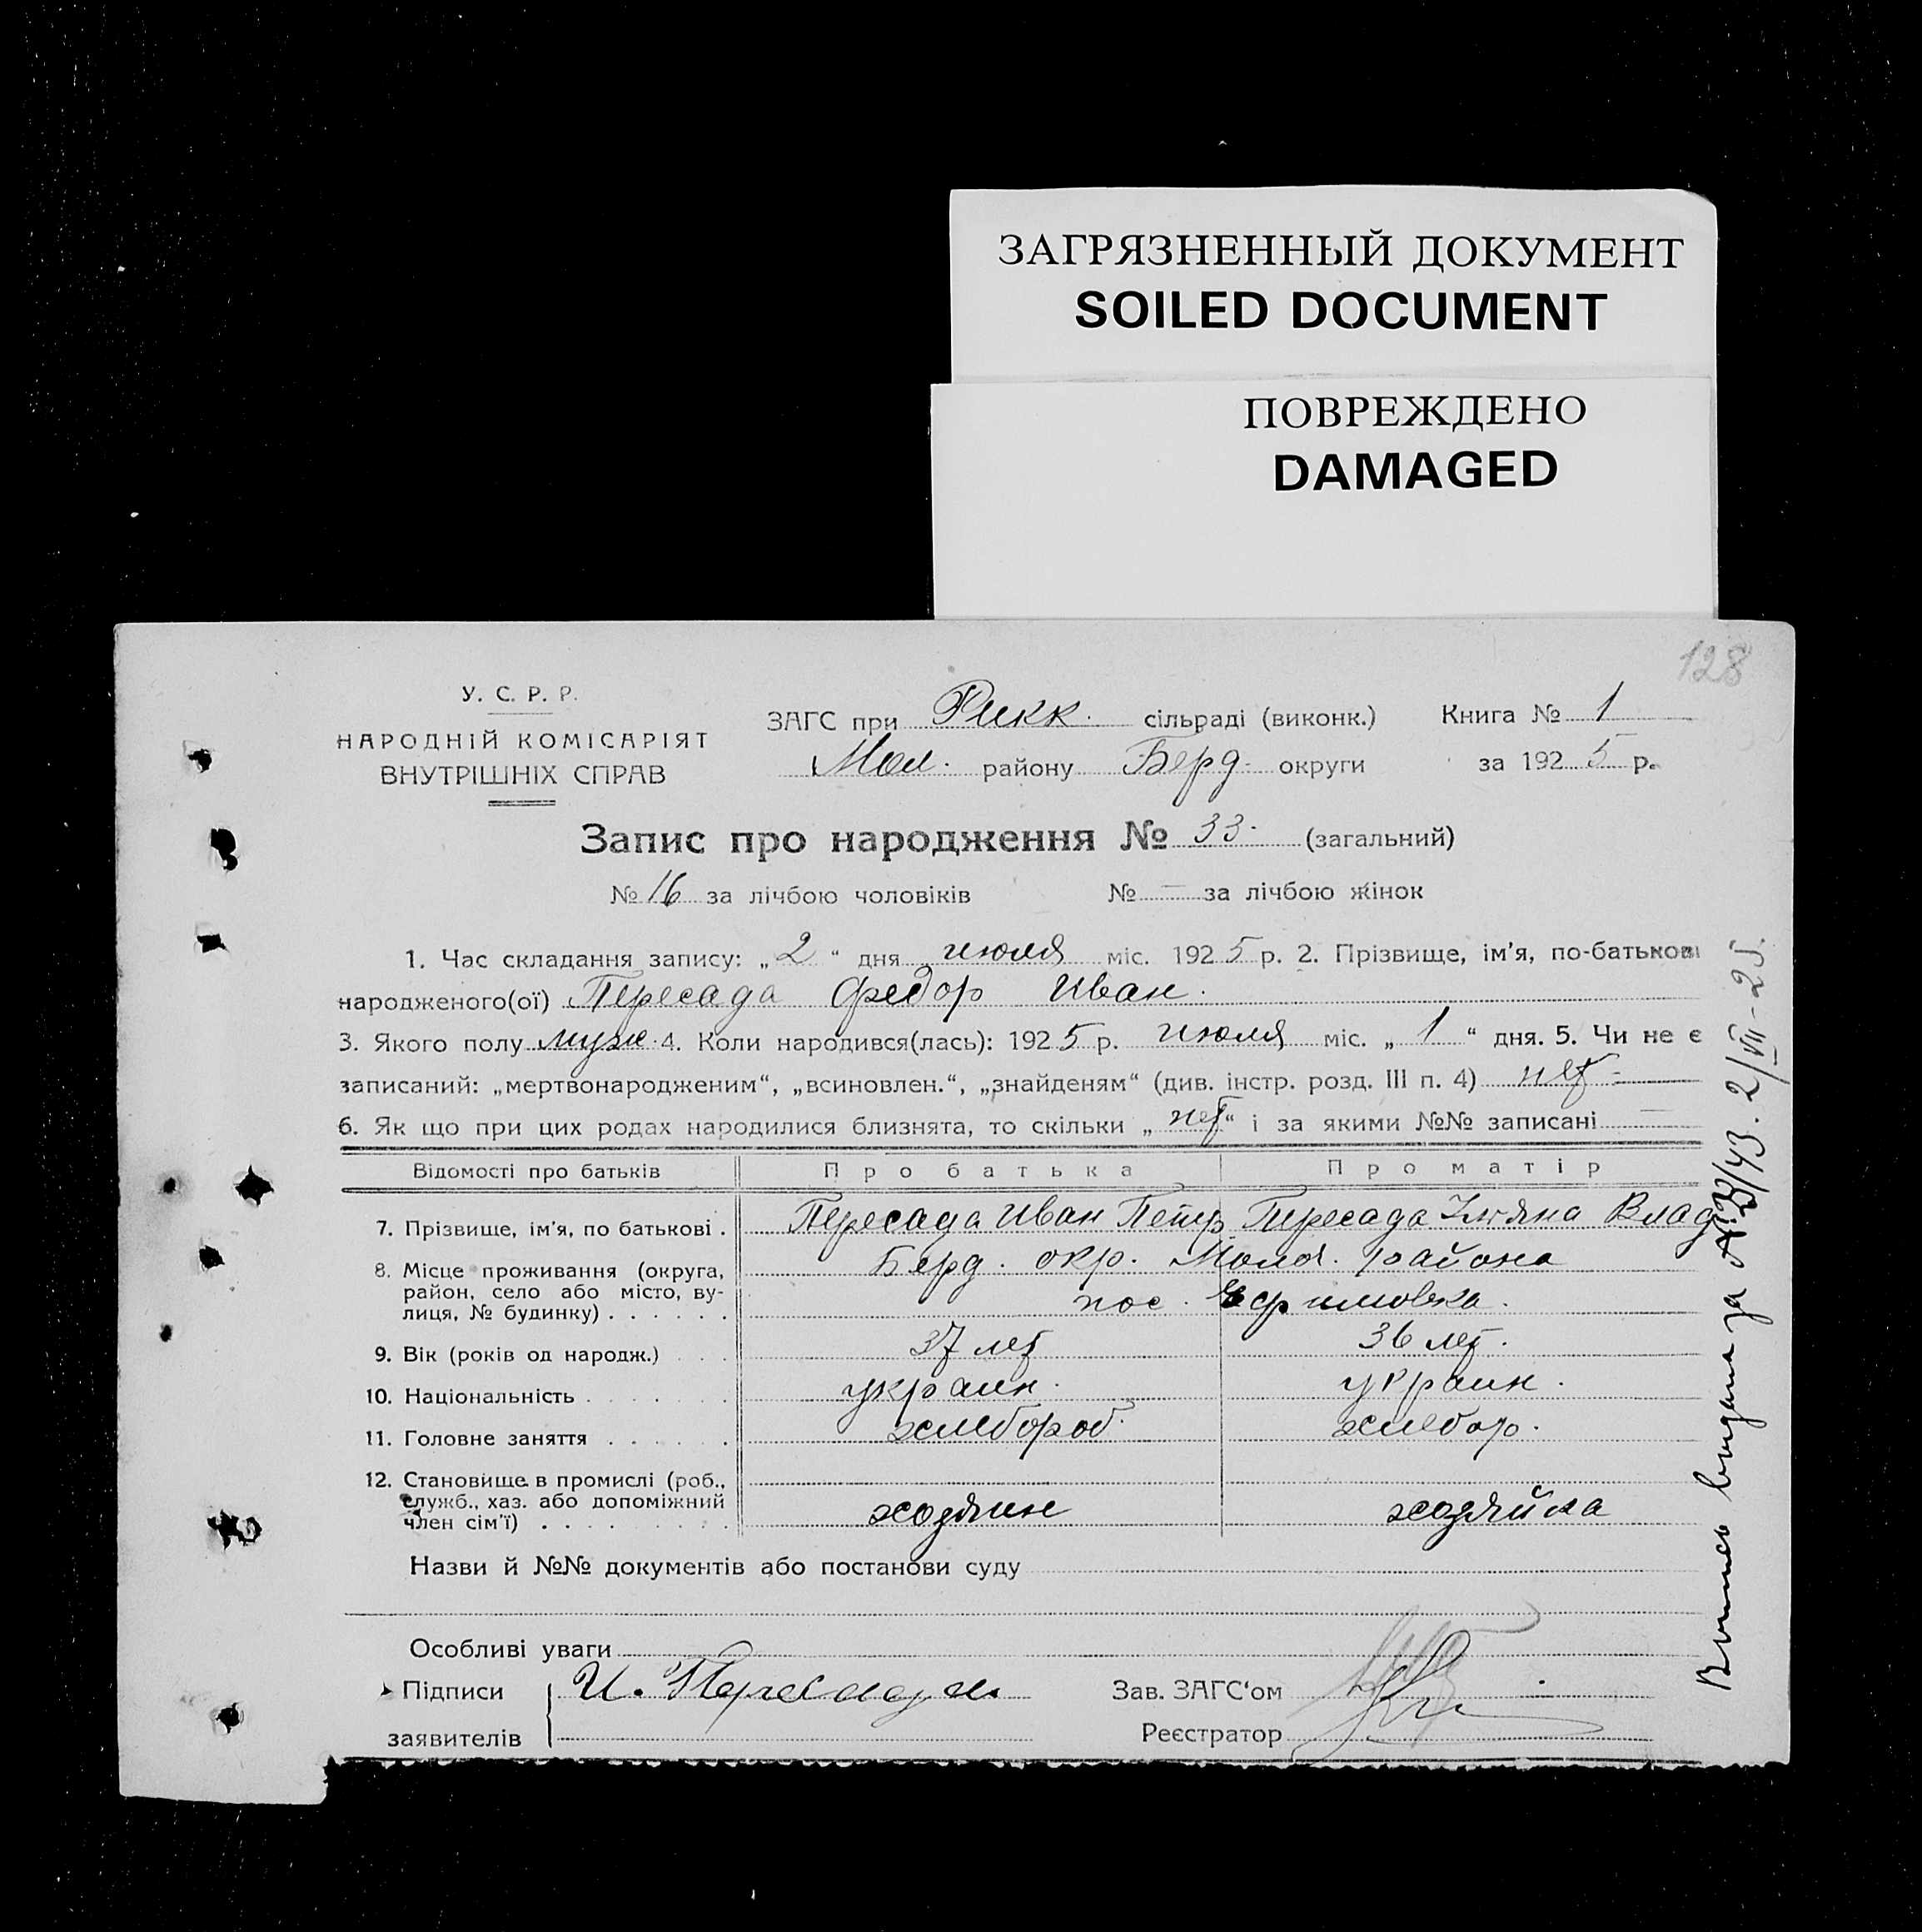 ЗАГРЯЗНЕННЫЙ ДОКУМЕНТ
SOILED DOCUMENT
ПОВРЕЖДЕНО
DAMAGED
128
У. С. Р. Р.
НАРОДНІЙ КОМІСАРІЯТ
ВНУТРІШНІХ СПРАВ
ЗАГС при Рикк. сільраді (виконк.) Книга № 1
Мол. району Берд. округи за 1925 р.
Запис про народження № 33. (загальний)
№ 16 за лічбою чоловіків № — за лічбою жінок
1. Час складання запису: „2“ дня июля міс. 1925 р. 2. Прізвище, ім'я, по-батькові
народженого(ої) Пересада Федор Иван.
3. Якого полу муж. 4. Коли народився(лась): 1925 р. июля міс. „1“ дня. 5. Чи не є
записаний: „мертвонародженим“, „всиновлен.“, „знайденям“ (див. інстр. розд. III п. 4) нет
6. Як що при цих родах народилися близнята, то скільки „нет“ і за якими №№ записані —
Відомості про батьків Про батька Про матір
7. Прізвище, ім'я, по батькові . Пересада Иван Петр Пересада Ульяна Влад
8. Місце проживання (округа, Берд. окр. Молоч. района
район, село або місто, ву-
лиця, № будинку) . . . . . . пос. Ефимовка.
9. Вік (років од народж.) . . . 37 лет 36 лет.
10. Національність . . . . . . . украин. украин.
11. Головне заняття . . . . . . хлебороб. хлебор.
12. Становище в промислі (роб.,
служб., хаз. або допоміжний
член сім'ї) . . . . . . . . . хозяин хозяйка
Назви й №№ документів або постанови суду
Особливі уваги
Підписи И. Пересада Зав. ЗАГС'ом
заявителів Реєстратор
Выпись выдана за № 43. 2/VII-25.